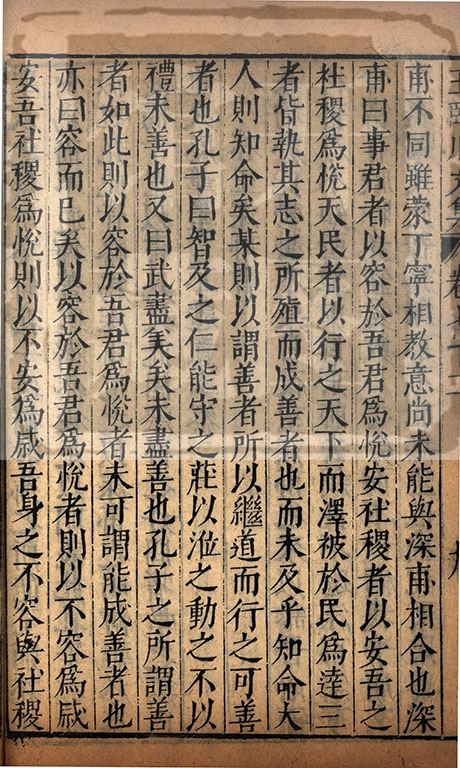 王臨川文集 卷七十二 九
甫不同雖蒙丁寧相教意尚未能與深甫相合也深
甫曰事君者以容於吾君爲悅安社稷者以安吾之
社稷爲悅天民者以行之天下而澤被於民爲達三
者皆執其志之所殖而成善者也而未及乎知命大
人則知命矣某則以謂善者所以繼道而行之可善
者也孔子曰智及之仁能守之莊以涖之動之不以
禮未善也又曰武盡美矣未盡善也孔子之所謂善
者如此則以容於吾君爲悅者未可謂能成善者也
亦曰容而已矣以容於吾君爲悅者則以不容爲戚
安吾社稷爲悅則以不安爲戚吾身之不容與社稷